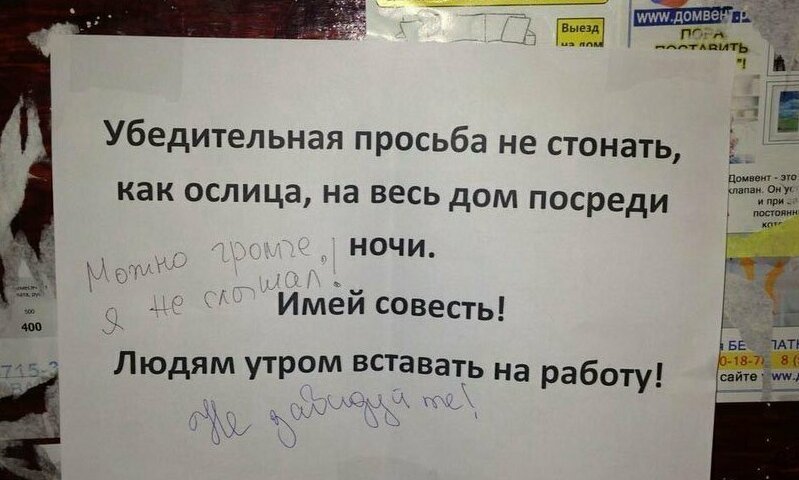 Выезд
на дом
www.домвент.р
ПОРА
ПОСТАВИТЬ
Убедительная просьба не стонать,
как ослица, на весь дом посреди
ночи.
Можно громче,
я не слышал!
Имей совесть!
Людям утром вставать на работу!
Не завидуйте!
Домвент - это
клапан. Он ус
и при
постоянн
500
400
715-3
0-18-7
8 (
сайте www.д